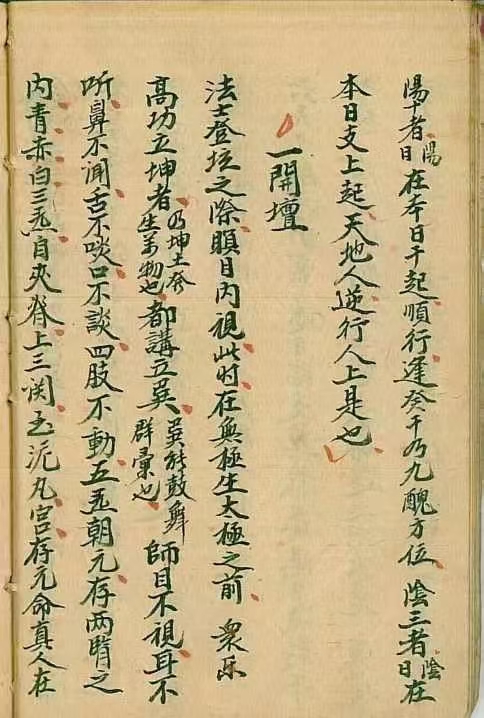 陽十者陽日在本日干起順行逢癸干乃九醜方位 陰三者陰日在
本日支上起天地人逆行人上是也
一開壇
法士登坛之際瞑目内視此时在無極生太極之前 衆乐
高功立坤者乃坤土發生萬物也都講立巽巽能鼓舞群彙也師目不視耳不
听鼻不闻舌不啖口不談四肢不動五炁朝元存两腎之
内青赤白三炁自夾脊上三関至泥丸宫存元命真人在